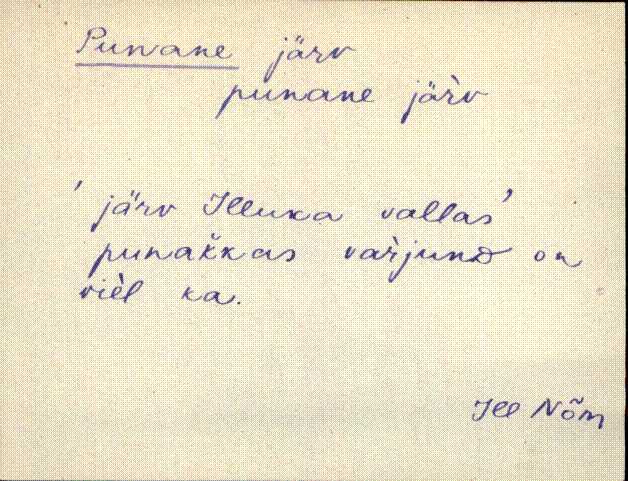 Punane järv
punane järv
'järv Illuka vallas'
punakkas varjund on
vièl ka.
Ill Nõm